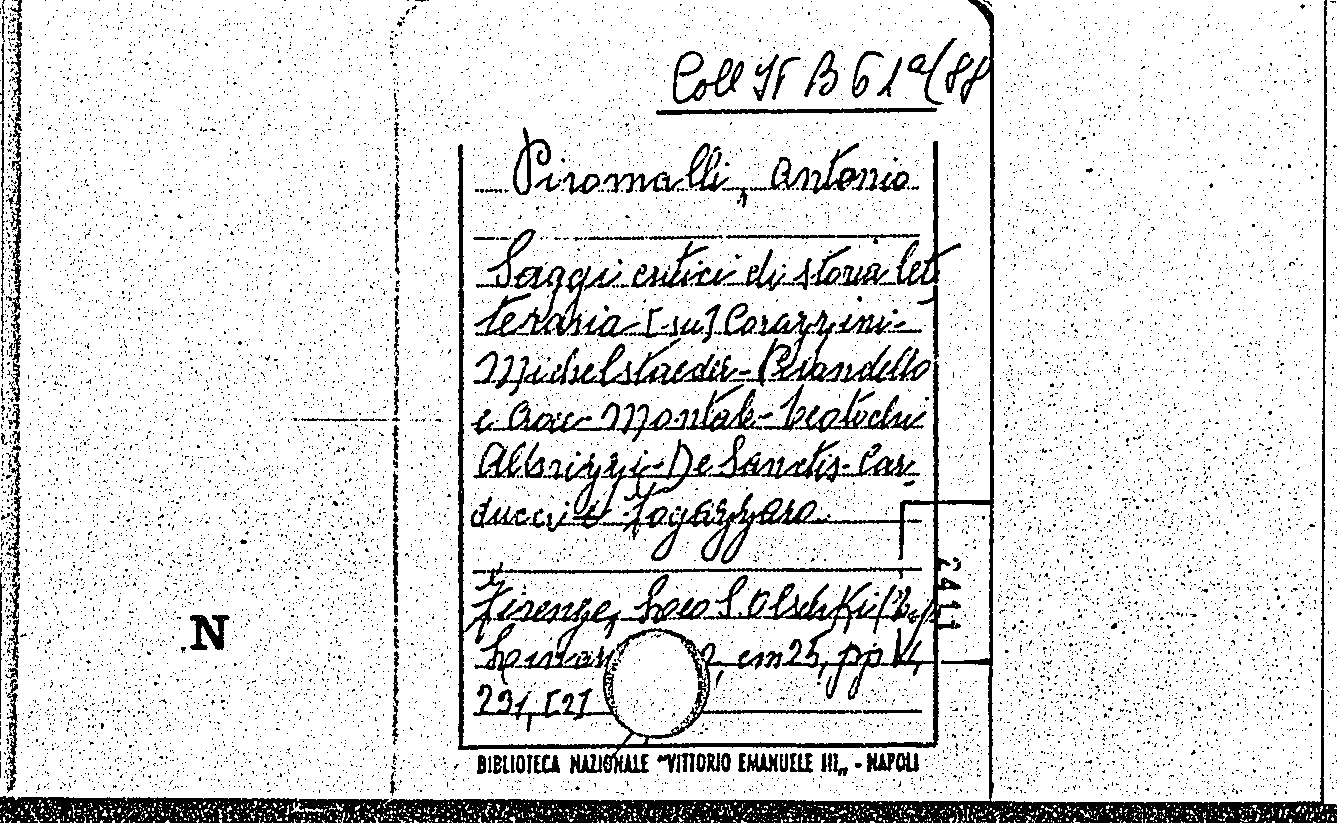 Coll It B 61ª/88
Piromalli, Antonio
Saggi critici di storia let
teraria - [su] Corazzini -
Michelstaedter - Pirandello
e Croce - Montale - Teotochi
Albrizzi - De Sanctis - Car-
ducci e Fogazzaro.
Firenze, Leo S. Olschki
cm 25, pp VI,
231, [2]
2411
N
BIBLIOTECA NAZIONALE "VITTORIO EMANUELE III„ - NAPOLI